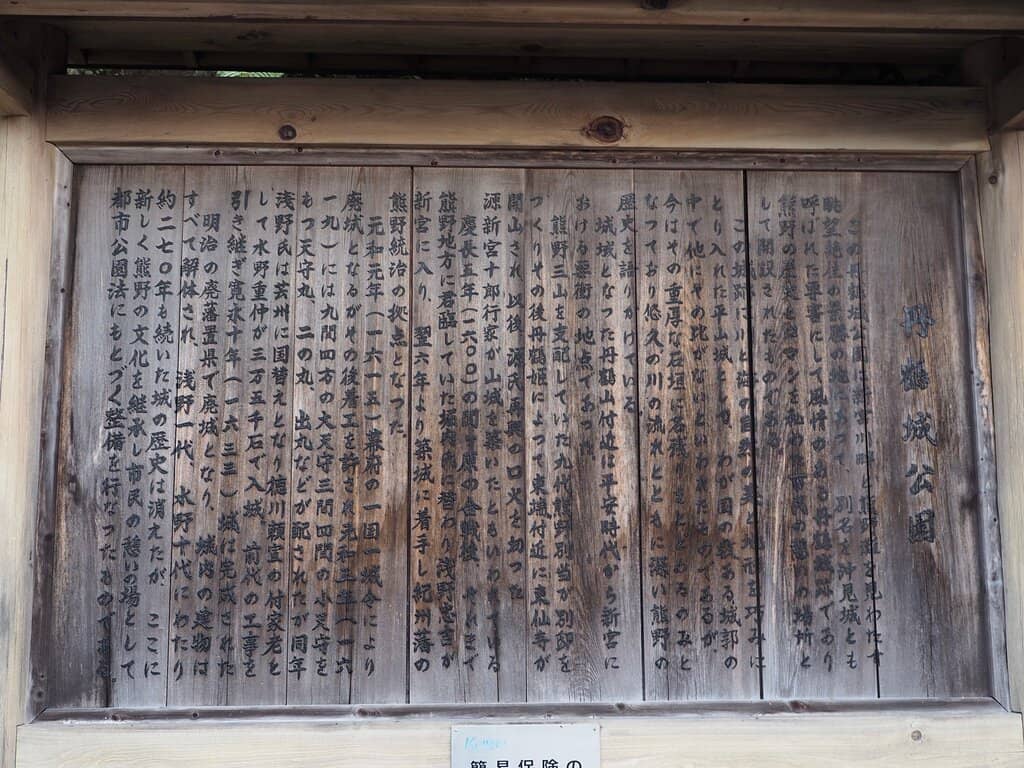 丹鶴城公園
この丹鶴城公園は
眺望絶佳の景勝の地にあって、別名を沖見城とも
呼ばれた要害にして風情のある丹鶴城跡であり
熊野の歴史とロマンを秘めた
して開設されたものである
この城跡に川と海の自然の美と地形を巧みに
とり入れた平山城として、わが国の数ある城郭の
中で他にその比がないといわれたものであるが
今はその重厚な石垣に名残りをとどめるのみと
なっており悠久の川の流れとともに深い熊野の
歴史を語りかけている
城域となった丹鶴山付近は平安時代から新宮に
おける要衝の地点であった
熊野三山を支配していた九代熊野別当が別邸を
つくりその後丹鶴姫によって東端付近に東仙寺が
開山され、以後、源氏再興の口火を切った
源新宮十郎行家が山城を築いたともいわれている
慶長五年（一六〇〇）の関ヶ原の合戦後、それまで
熊野地方に君臨していた堀内氏に替わり浅野忠吉が
新宮に入り、翌六年より築城に着手し紀州藩の
熊野統治の拠点となった
元和元年（一六一五）幕府の一国一城令により
廃城となるがその後着工を許され元和三年（一六
一九）には九間四方の大天守三間四間の小天守を
もつ天守丸、二の丸、出丸などが配されたが同年
浅野氏は芸州に国替えとなり徳川頼宣の付家老と
して水野重仲が三万五千石で入城、前代の工事を
引き継ぎ寛永十年（一六三三）城は完成された
明治の廃藩置県で廃城となり、城内の建物は
すべて解体され、浅野一代、水野十代にわたり
約二七〇年も続いた城の歴史は消えたが、ここに
新しく熊野の文化を継承し市民の憩いの場として
都市公園法にもとづく整備を行なったものである
簡易保険の